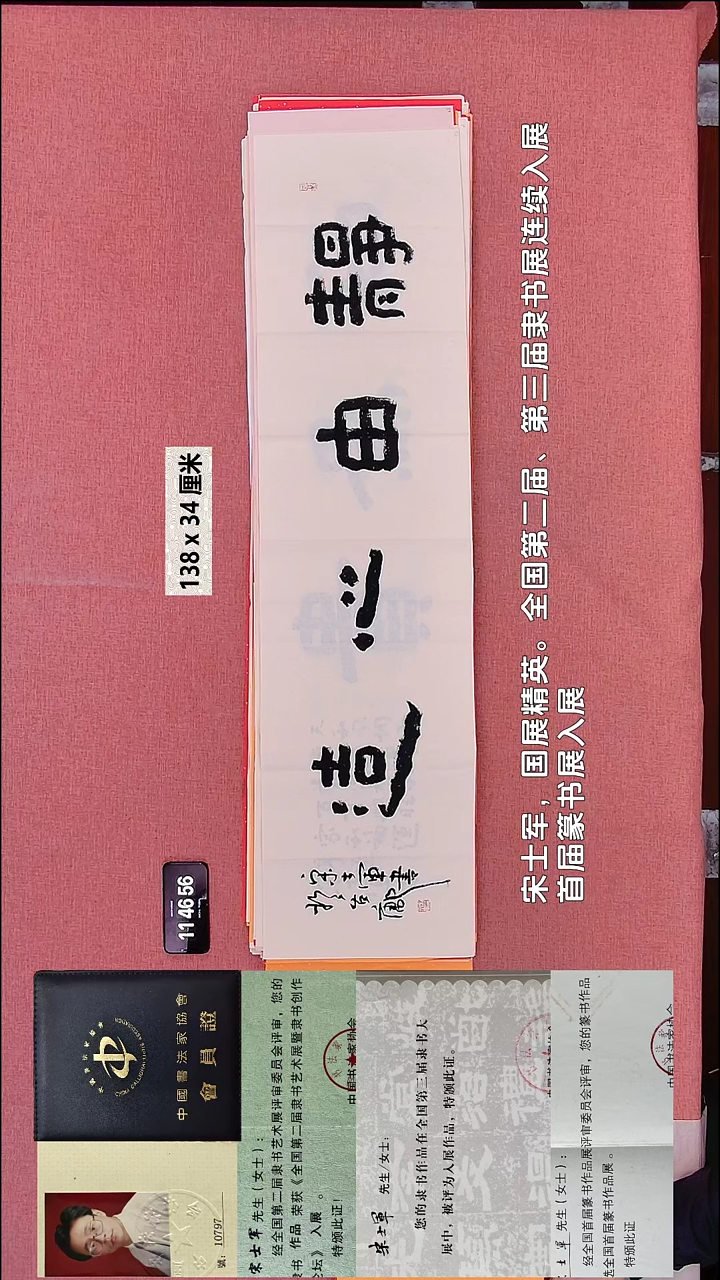 138 x 34 厘米
靜由心造
宋士軍書
宋士军，国展精英。全国第二届、第三届隶书展连续入展
首届篆书展入展
11 46 56
中國書法家協會
會員證
號：10797
宋士軍 先生（女士）：
经全国第二届隶书艺术展评审委员会评审，您的
书 作品 荣获《全国第二届隶书艺术展暨隶书创作
坛》 入展 。
特颁此证！
宋士軍 先生/女士：
您的隶书作品在全国第三届隶书大
展中，被评为入展作品，特颁此证。
士軍 先生（女士）：
经全国首届篆书作品展评审委员会评审，您的篆书作品
选全国首届篆书作品展。
特颁此证